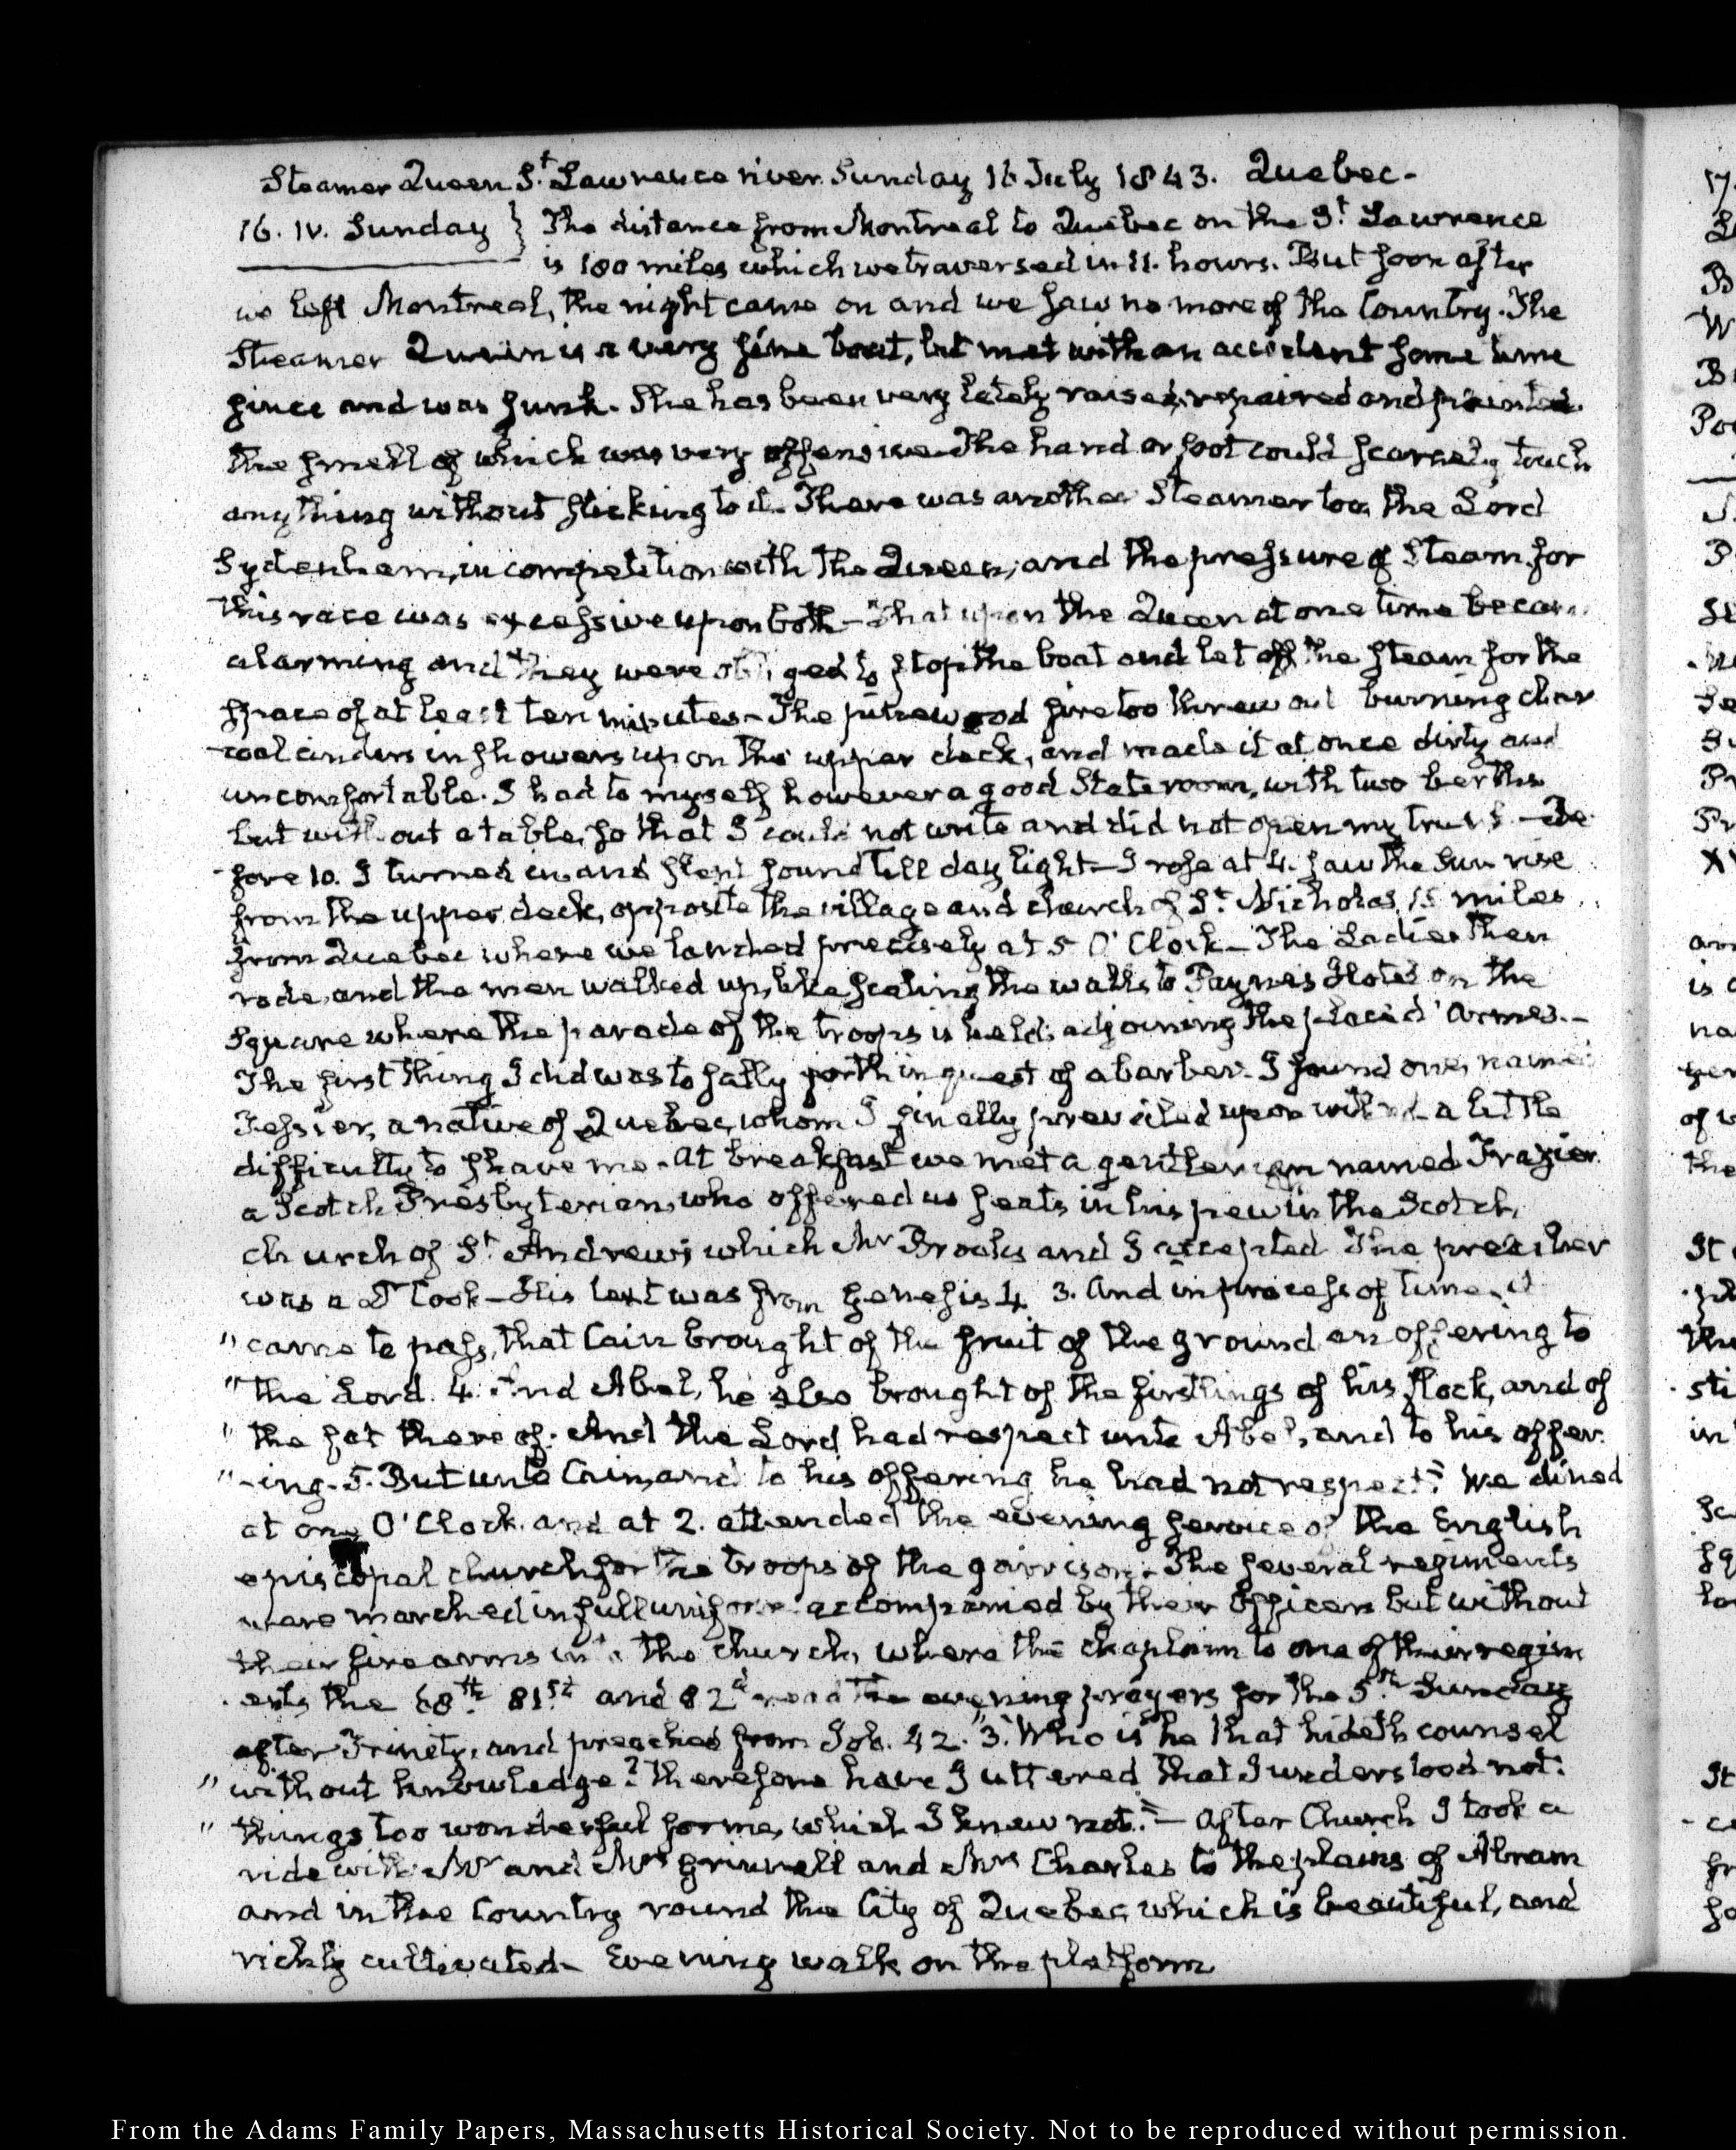 Steamer Queen St. Lawrence river Sunday 16 July 1843. Quebec-
16. IV. Sunday } The distance from Montreal to Quebec on the St. Lawrence
is 180 miles which we traversed in 11. hours. But soon after
we left Montreal, the night came on and we saw no more of the Country. The
Steamer Queen is a very fine boat, but met with an accident some time
since and was sunk. She has been very lately raised, repaired and painted
the smell of which was very offensive. The hand or foot could scarcely touch
any thing without sticking to it. There was another Steamer too, the Lord
Sydenham, in competition with the Queen, and the pressure of Steam for
this race was excessive upon both - That upon the Queen at one time became
alarming and they were obliged to stop the boat and let off the steam for the
space of at least ten minutes - The pitchwood fire too threw out burning char
coal cinders in showers upon the upper deck, and made it at once dirty and
uncomfortable. I had to myself however a good State room, with two berths
but without a table, so that I could not write and did not open my trunks - Be
fore 10. I turned in and slept sound till day light - I rose at 4. saw the Sun rise
from the upper deck, opposite the village and church of St. Nicholas, 15 miles
from Quebec where we landed precisely at 5 O'Clock - The Ladies then
rode, and the men walked up, like scaling the walls to Paynes Hotel on the
Square where the parade of the troops is held, adjoining the place d'armes. -
The first thing I did was to sally forth in quest of a barber. I found one, named
Tessier, a native of Quebec, whom I finally prevailed upon with not a little
difficulty to shave me. At breakfast we met a gentleman named Frazier
a Scotch Presbyterian, who offered us seats in his pew in the Scotch
church of St. Andrew; which Mr Brooks and I accepted The preacher
was a Dr Cook - His text was from Genesis 4 3. And in process of time, it
" came to pass, that Cain brought of the fruit of the ground an offering to
" the Lord. 4. And Abel, he also brought of the firstlings of his flock, and of
" the fat there of. And the Lord had respect unto Abel, and to his offer
" -ing. 5. But unto Cain, and to his offering he had not respect." We dined
at one O'Clock. and at 2. attended the evening service of the English
episcopal church for the troops of the garrison. The several regiments
were marched in full uniform accompanied by their Officers but without
their fire arms into the church, where the chaplain to one of their regim
ents the 68th 81st and 82d read the evening prayers for the 5th Sunday
after Trinity, and preached from Job. 42. 3. "Who is he that hideth counsel
" without knowledge? therefore have I uttered that I understood not:
" things too wonderful for me, which I knew not." - After Church I took a
ride with Mr and Mrs Grinnell and Mrs Charles to the plains of Abram
and in the Country round the City of Quebec, which is beautiful, and
richly cultivated - Evening walk on the platform
From the Adams Family Papers, Massachusetts Historical Society. Not to be reproduced without permission.